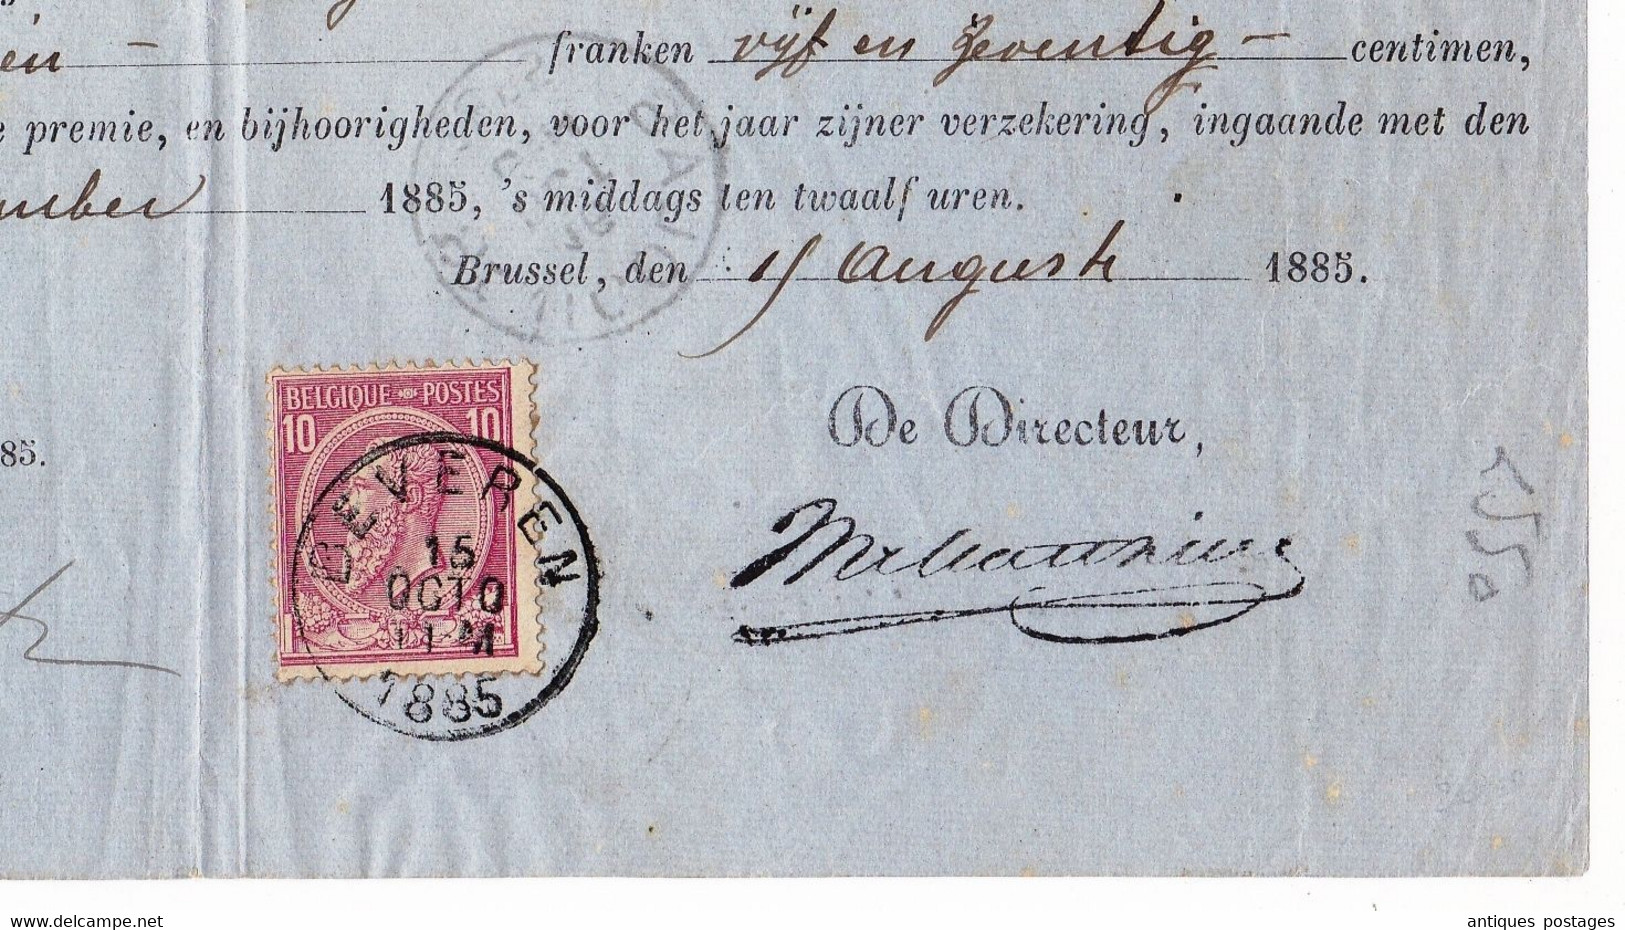 en – franken vijf en Zeventig – centimen,
premie, en bijhoorigheden, voor het jaar zijner verzekering, ingaande met den
mber 1885, 's middags ten twaalf uren.
Brussel, den 15 Augusti 1885.
BELGIQUE POSTES
10 10
85.
De Directeur,
SEVEREN
15
OCTO
11-M
1885
www.delcampe.net
antiques postages